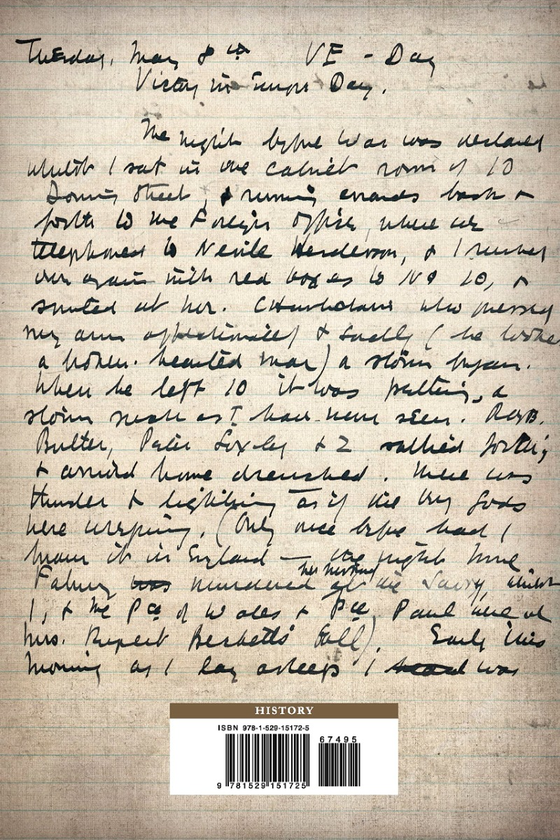 Tuesday, May 8th VE - Day
Victory in Europe Day.
The night before war was declared
whilst I sat in the cabinet room of 10
Downing Street, & running errands back &
forth to the Foreign Office, where we
telephoned to Nevile Henderson, & I rushed
over again with red boxes to No 10, &
smiled at her. Chamberlain who pressed
my arm affectionately & sadly (he looked
a broken-hearted man) a storm began.
When he left 10 it was pelting, a
storm such as I have never seen. Rab.
Butler, Peter Loxley & I sallied forth,
& arrived home drenched. There was
thunder & lightning as if the very Gods
were weeping. (Only once before had I
known it in England — the night
Fahmy murdered her husband at the Savoy, whilst
I, & the Pce of Wales & Pce Paul were at
Mrs. Rupert Beckett's Ball). Early this
morning as I lay asleep I was
HISTORY
ISBN 978-1-529-15172-5
67495
9 781529 151725